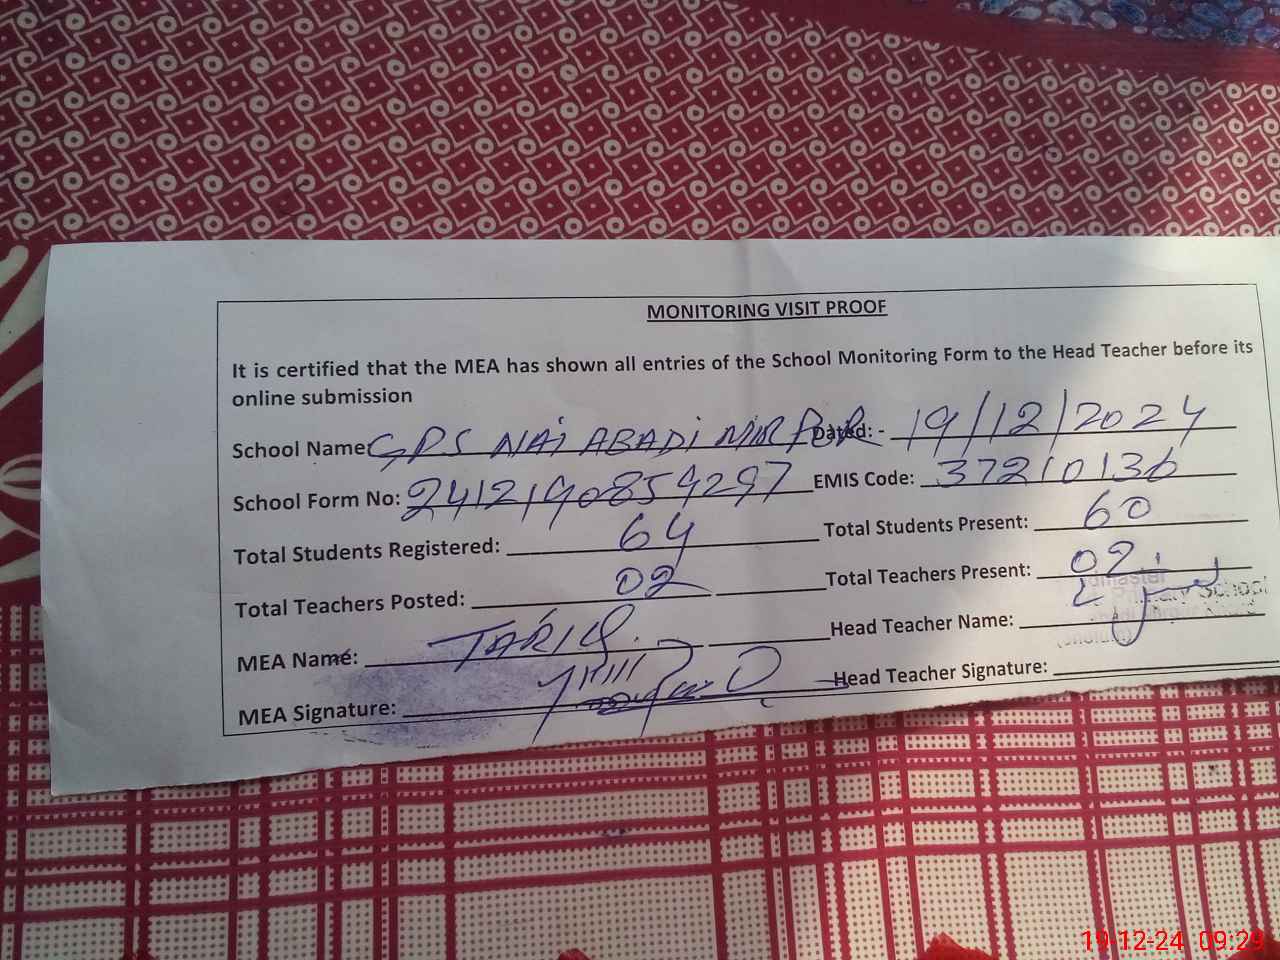 MONITORING VISIT PROOF
It is certified that the MEA has shown all entries of the School Monitoring Form to the Head Teacher before its
online submission
School Name GPS NAi ABADi MIR PUR Dated: - 19/12/2024
School Form No: 241219085929​7 EMIS Code: 37210136
Total Students Registered: 64 Total Students Present: 60
Total Teachers Posted: 02 Total Teachers Present: 02
MEA Name: TARIQ Head Teacher Name:
MEA Signature: Head Teacher Signature:
School
19-12-24 09:29